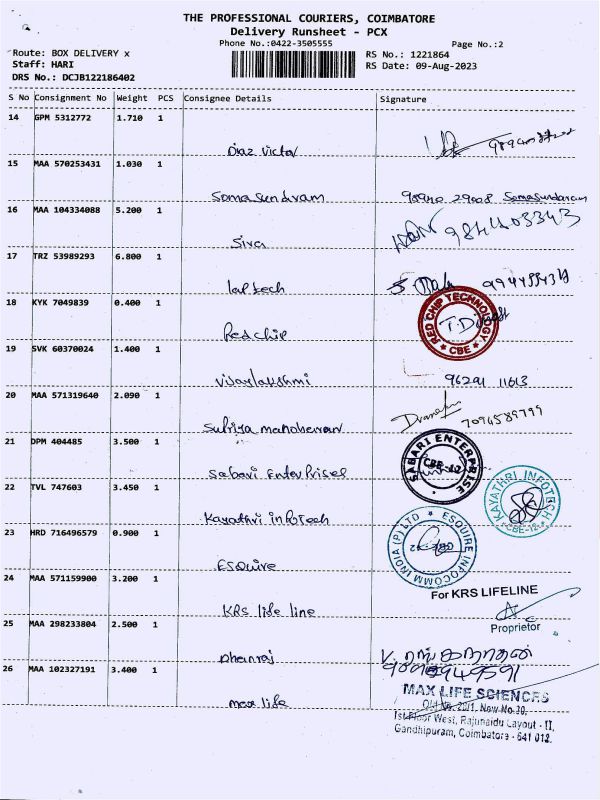 THE PROFESSIONAL COURIERS, COIMBATORE
Delivery Runsheet - PCX
Phone No.:0422-3505555
Page No.:2
Route: BOX DELIVERY x
RS No.: 1221864
Staff: HARI
RS Date: 09-Aug-2023
DRS No.: DCJB122186402
S No Consignment No Weight PCS Consignee Details Signature
14 GPM 5312772 1.710 1
Diaz Victor
15 MAA 570253431 1.030 1
Somasundram 90940 29008 Somasundaram
16 MAA 104334088 5.200 1
Siva
17 TRZ 53989293 6.800 1
laptech
18 KYK 7049839 0.400 1
RED CHIP TECHNOLOGY
CBE
Redchip
19 SVK 60370024 1.400 1
Vijaylakshmi 96291 11613
20 MAA 571319640 2.090 1
Supriya manoharan 7094589799
21 DPM 404485 3.500 1
SABARI ENTERPRISE
CBE-12
Sabari Enterprises
22 TVL 747603 3.450 1
KAYATHRI INFOTECH
CBE-12
Kayathri infotech
23 HRD 716496579 0.900 1
ESQUIRE INFOCOMM INDIA (P) LTD
Esquire
24 MAA 571159900 3.200 1
For KRS LIFELINE
KRS life line
Proprietor
25 MAA 298233804 2.500 1
Dhanraj
26 MAA 102327191 3.400 1
max life
MAX LIFE SCIENCES
Old No. 20/1, New No.30,
1st Floor West, Rajunaidu Layout - II,
Gandhipuram, Coimbatore - 641 012.